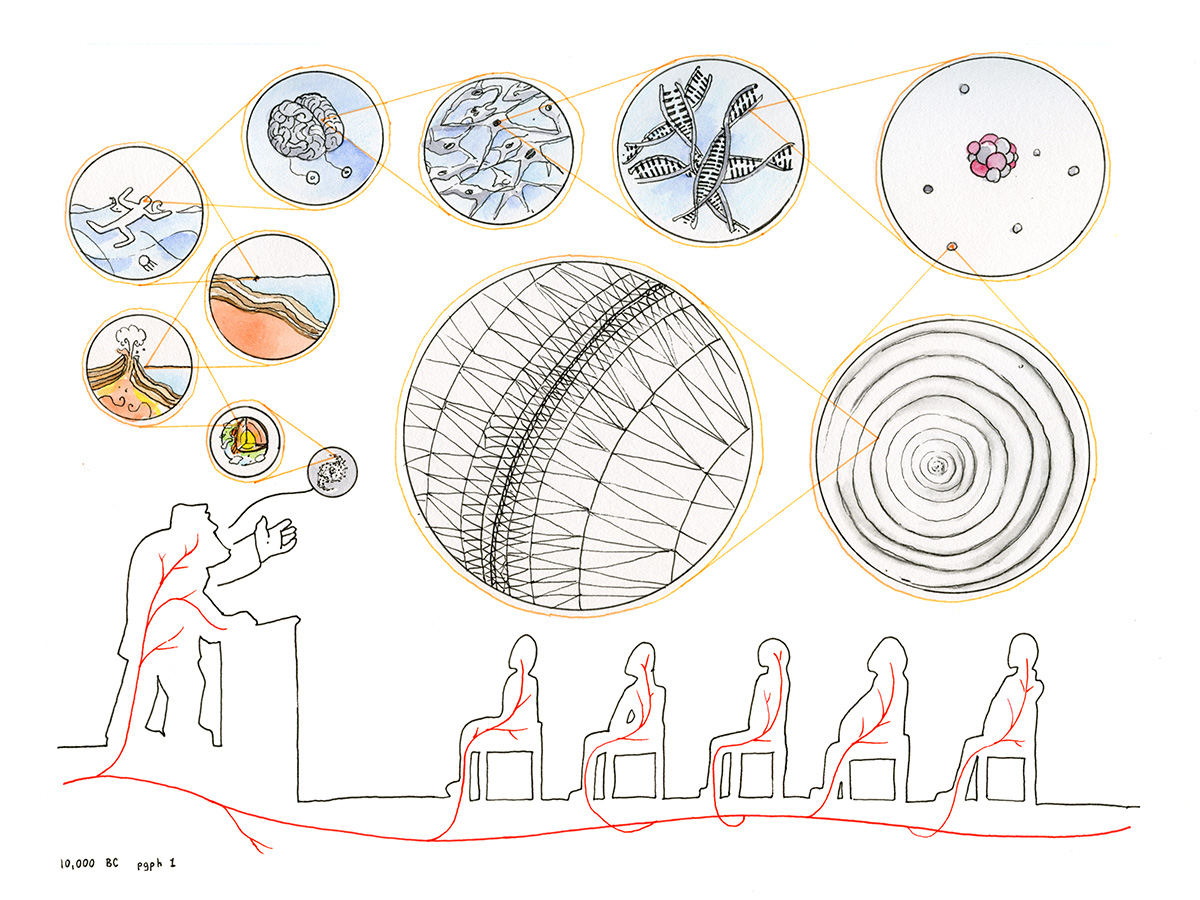 10,000 BC pgph 1